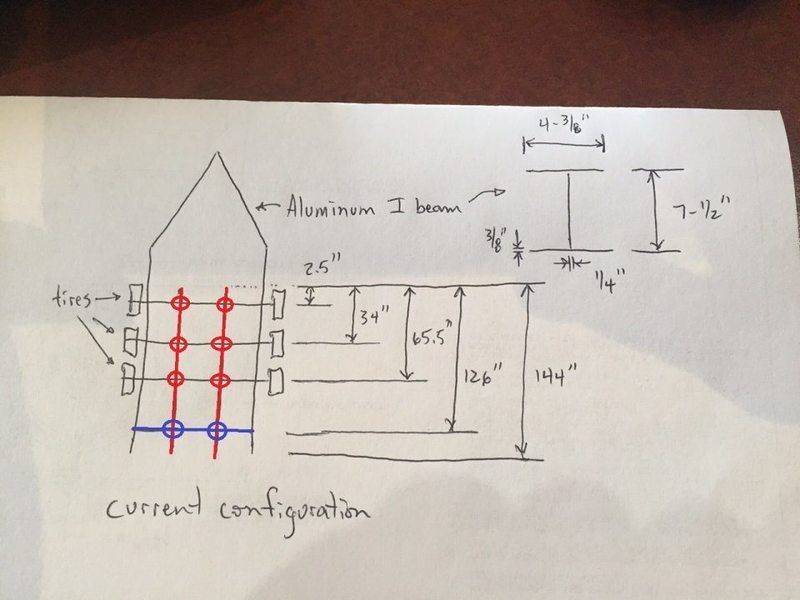 4-3/8"
← Aluminum I beam →
7-1/2"
3/8"
1/4"
2.5"
tires
34"
65.5"
126"
144"
current configuration